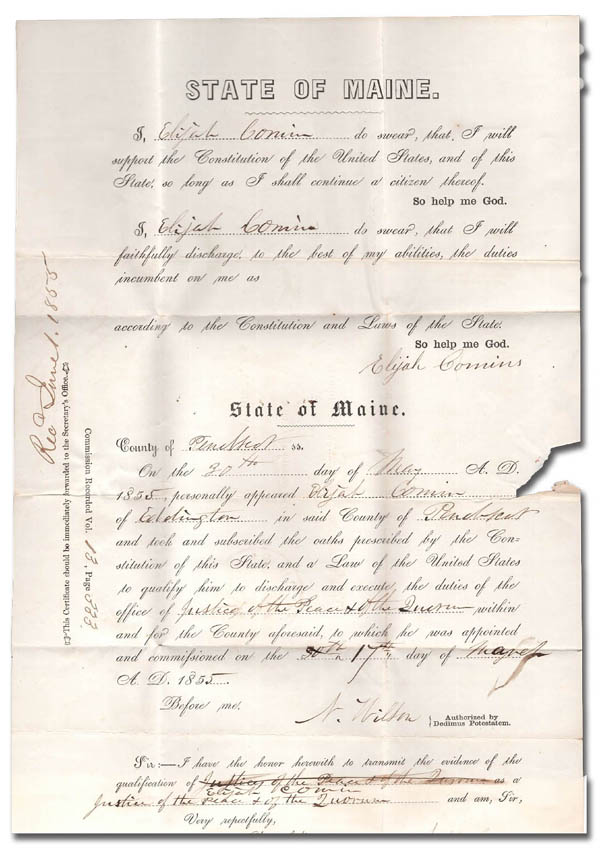 STATE OF MAINE.
I, Elijah Comins do swear, that, I will
support the Constitution of the United States, and of this
State, so long as I shall continue a citizen thereof.
So help me God.
I, Elijah Comins do swear, that I will
faithfully discharge, to the best of my abilities, the duties
incumbent on me as
according to the Constitution and Laws of the State.
So help me God.
Elijah Comins
State of Maine.
County of Penobscot ss.
On the 30th day of May A. D.
1855, personally appeared Elijah Comin
of Eddington in said County of Penobscot
and took and subscribed the oaths prescribed by the Con-
stitution of this State, and a Law of the United States
to qualify him to discharge and execute, the duties of the
office of Justice of the Peace & of the Quorum within
and for the County aforesaid, to which he was appointed
and commissioned on the 17th day of
A. D. 1855.
Before me,
N. Wilson
Authorized by
Dedimus Potestatem.
Sir:—I have the honor herewith to transmit the evidence of the
qualification of Justice of the Peace & of the Quorum as a
Elijah Comin
Justice of the Peace & of the Quorum and am, Sir,
Very repectfully,
Rec'd June 1. 1855
This Certificate should be immediately forwarded to the Secretary's Office.
Commission Recorded Vol. 13, Page